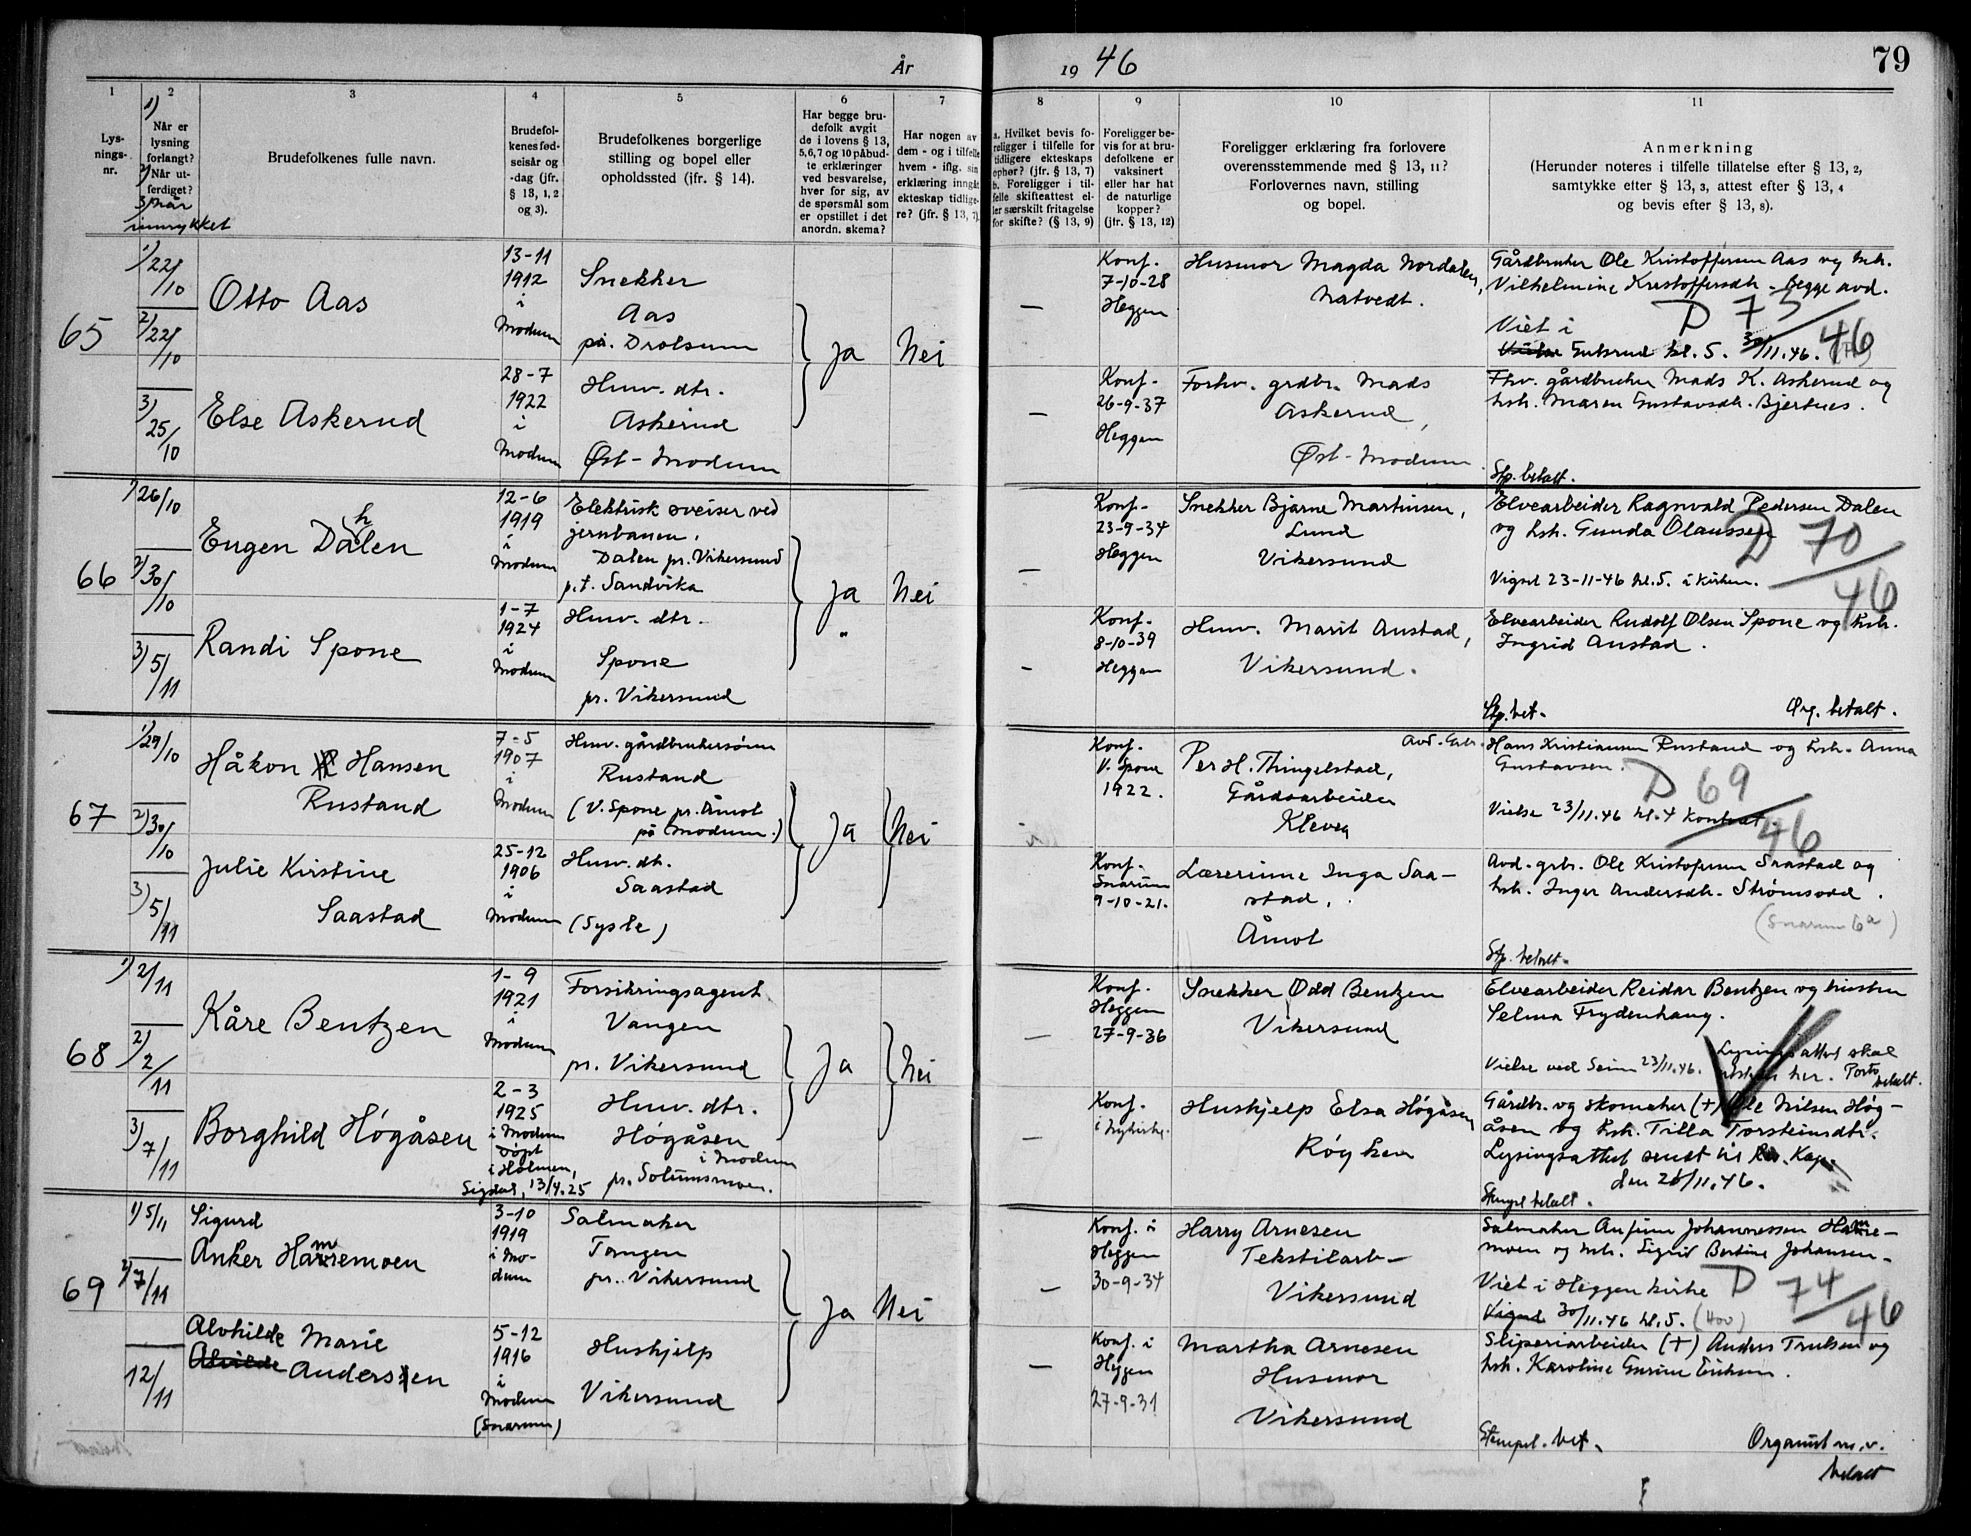 År 1946
79
1
Lys-
nings-
nr.
2
1)
Når er
lysning
forlangt?
2)
Når ut-
ferdiget?
3) Når
innrykket
3
Brudefolkenes fulle navn.
4
Brudefol-
kenes fød-
selsår og
-dag (jfr.
§ 13, 1, 2
og 3).
5
Brudefolkenes borgerlige
stilling og bopel eller
opholdssted (jfr. § 14).
6
Har begge bru-
defolk avgit
de i lovens § 13,
5, 6, 7 og 10 påbud-
te erklæringer
ved besvarelse,
hver for sig, av
de spørsmål som
er opstillet i det
anordn. skema?
7
Har nogen av
dem - og i tilfelle
hvem - iflg. sin
erklæring inngått
ekteskap tidlige-
re? (jfr. § 13, 7).
8
a. Hvilket bevis fo-
religger i tilfelle for
tidligere ekteskaps
ophør? (jfr. § 13, 7)
b. Foreligger i til-
felle skifteattest el-
ler særskilt fritagelse
for skifte? (§ 13, 9)
9
Foreligger be-
vis for at bru-
defolkene er
vaksinert
eller har hat
de naturlige
kopper?
(jfr. § 13, 12)
10
Foreligger erklæring fra forlovere
overensstemmende med § 13, 11?
Forlovernes navn, stilling
og bopel.
11
Anmerkning
(Herunder noteres i tilfelle tillatelse efter § 13, 2,
samtykke efter § 13, 3, attest efter § 13, 4
og bevis efter § 13, 8).
65
1) 22/10
2) 22/10
3) 25/10
Otto Aas
13-11
1912
i
Modum
Snekker
Aas
på Drolsum
Ja
Nei
—
Konf.
7-10-28
Heggen
Husmor Magda Nordalen,
Natvedt.
Gårdbruker Ole Kristoffersen Aas og hh.
Vilhelmine Kristoffersdtr. - begge avd.
D 73/46
Viet i
Gubsrud kl. 5. 30/11.46.
Else Askerud
28-7
1922
i
Modum
Husv. dtr.
Askerud
Øst-Modum
—
Konf.
26-9-37
Heggen
Forhv. grdbr. Mads
Askerud,
Øst-Modum
Fhv. gårdbruker Mads K. Askerud og
hsh. Maren Gustavsdtr. Bjertnes.
Stp. betalt.
66
1) 26/10
2) 30/10
3) 5/11
Eugen Dahlen
12-6
1919
i
Modum
Elektrisk sveiser ved
jernbanen,
Dalen pr. Vikersund
p.t. Sandvika
Ja
Nei
—
Konf.
23-9-34
Heggen
Snekker Bjarne Martinsen,
Lund
Vikersund
Elvearbeider Ragnvald Pedersen Dalen
og hsh. Gunda Olaussen
D 70/46
Vigsel 23-11-46 kl. 5. i kirken.
Randi Spone
1-7
1924
i
Modum
Husv. dtr.
Spone
pr. Vikersund
"
-
Konf.
8-10-39
Heggen
Husv. Marit Austad,
Vikersund.
Elvearbeider Rudolf Olsen Spone og hsh.
Ingrid Austad.
Stp. bet.
Org. betalt.
67
1) 29/10
2) 30/10
3) 5/11
Håkon Hansen
Rustand
7-5
1907
i
Modum
Husv. gårdbrukersønn
Rustand
(V. Spone pr. Åmot
på Modum.)
Ja
Nei
Konf.
V. Spone
1922.
Per H. Thingelstad,
Gårdsarbeider
Kleven
Avd. Gbr. Hans Kristiansen Rustand og hsh. Anna
Gustavsen.
D 69/46
Vielse 23/11.46 kl. 4 Kontrat.
Julie Kirstine
Saastad
25-12
1906
i
Modum
Husv. dt.
Saastad
(Sysle)
Konf.
Snarum
9-10-21.
Lærerinne Inga Saa-
stad,
Åmot
Avd. grbr. Ole Kristofersen Saastad og
hsh. Inger Andersdtr. Strømsodd.
(Snarum 6a)
Stp. betalt.
68
1) 2/11
2) 2/11
3) 7/11
Kåre Bentzen
1-9
1921
i
Modum
Forsikringsagent
Vangen
pr. Vikersund
Ja
Nei
—
Konf.
Heggen
27-9-36
Snekker Odd Bentzen
Vikersund
Elvearbeider Reidar Bentzen og hustru
Selma Frydenhaug.
Vielse ved 23/11.46. Lysingsattest skal
her. Porto
betalt.
Borghild Høgåsen
2-3
1925
i Modum
døpt
i Holmen,
Sigdal, 13/4.25
Husv. dtr.
Høgåsen
i Modum
pr. Solumsmoen.
—
Konf.
i Nykirke.
Hushjelp Elsa Høgåsen
Røyken
Gårdbr. og skomaker (+) Ole Nilsen Høg-
åsen og hsh. Tilla Torsteinsdtr.
Lysingsattest sendt til Kap.
den 26/11.46.
Stempel betalt.
69
1) 5/11
2) 7/11
12/11
Sigurd
Anker Hammemoen
3-10
1919
i Mo-
dum
Salmaker
Tangen
pr. Vikersund
Ja
Nei
—
Konf. i
Heggen
30-9-34
Harry Arnesen
Tekstilarb.
Vikersund
Salmaker Anfinn Johannessen Hamme-
moen og hh. Sigrid Bertine Johansen.
Viet i Heggen kirke
D 74/46
Vigsel 30/11.46 kl. 5. (400)
Alvhilde Marie
Alvilde Andersen
5-12
1916
i
Modum
(Snarum)
Hushjelp
Vikersund
—
Konf. i
Heggen
27-9-31
Martha Arnesen
Husmor
Vikersund
Sliperiarbeider (+) Anders Trulsen og
hsh. Karoline Gurine Eriksen.
Stempel. bet.
Organist m.v.
betalt